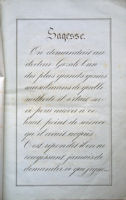 Sagesse.
On demandait au
docteur Gesáli l'un
des plus grands génies
musulmans de quelle
méthode il s'était ser-
vi pour arriver à ce
haut point de science
qu'il avait acquis.
C'est répondit-il en ne
rougissant jamais de
demander ce que j'igno-